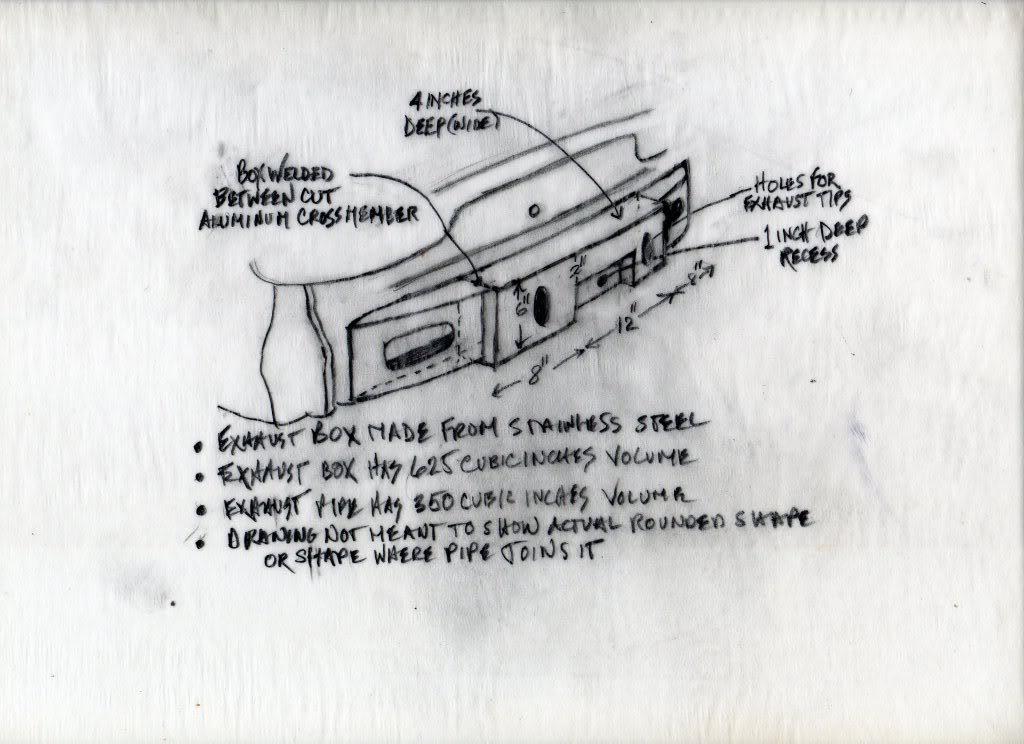 4 INCHES
DEEP (WIDE)
BOX WELDED
BETWEEN CUT
ALUMINUM CROSS MEMBER
HOLES FOR
EXHAUST TIPS
1 INCH DEEP
RECESS
2"
6"
8"
12"
8"
• EXHAUST BOX MADE FROM STAINLESS STEEL
• EXHAUST BOX HAS 625 CUBIC INCHES VOLUME
• EXHAUST PIPE HAS 350 CUBIC INCHES VOLUME
• DRAWING NOT MEANT TO SHOW ACTUAL ROUNDED SHAPE
OR SHAPE WHERE PIPE JOINS IT.